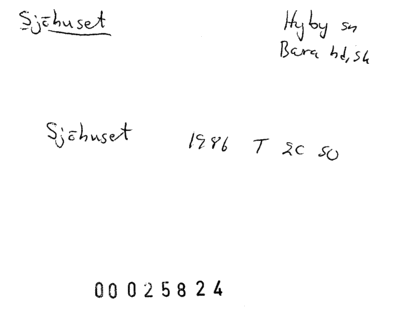 Sjöhuset
Hyby sn
Bara hd, Sk
Sjöhuset 1986 T 2C SO
00025824